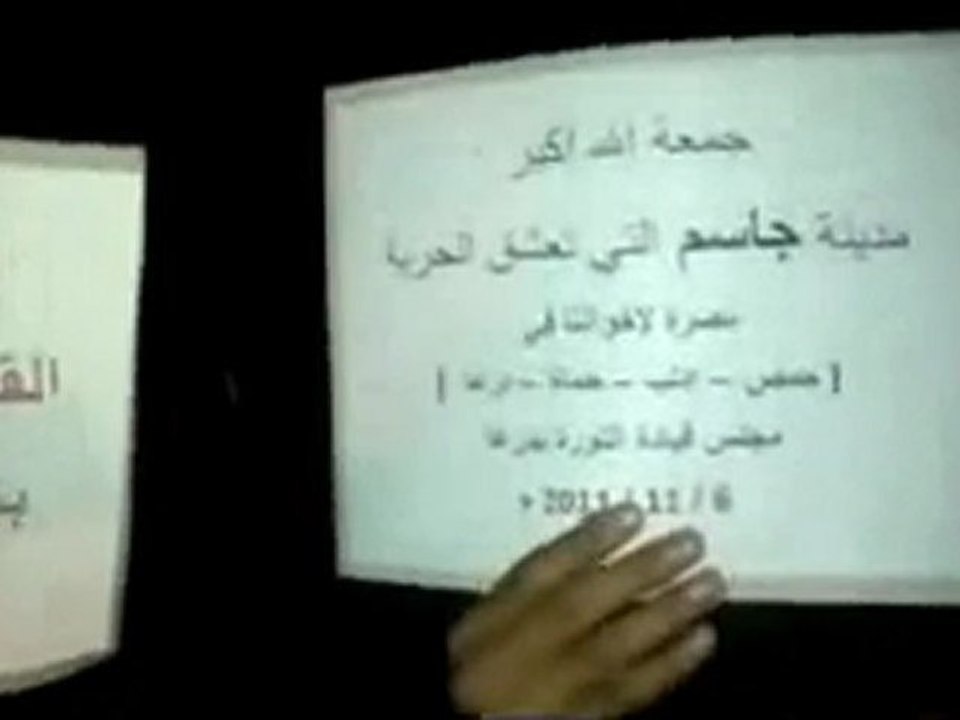 جمعة الله اكبر
مدينة جاسم التي تعشق الحرية
نصرة لاخواننا في
[ حمص – ادلب – حماة – درعا ]
مجلس قيادة الثورة بدرعا
6 / 11 / 2011 م